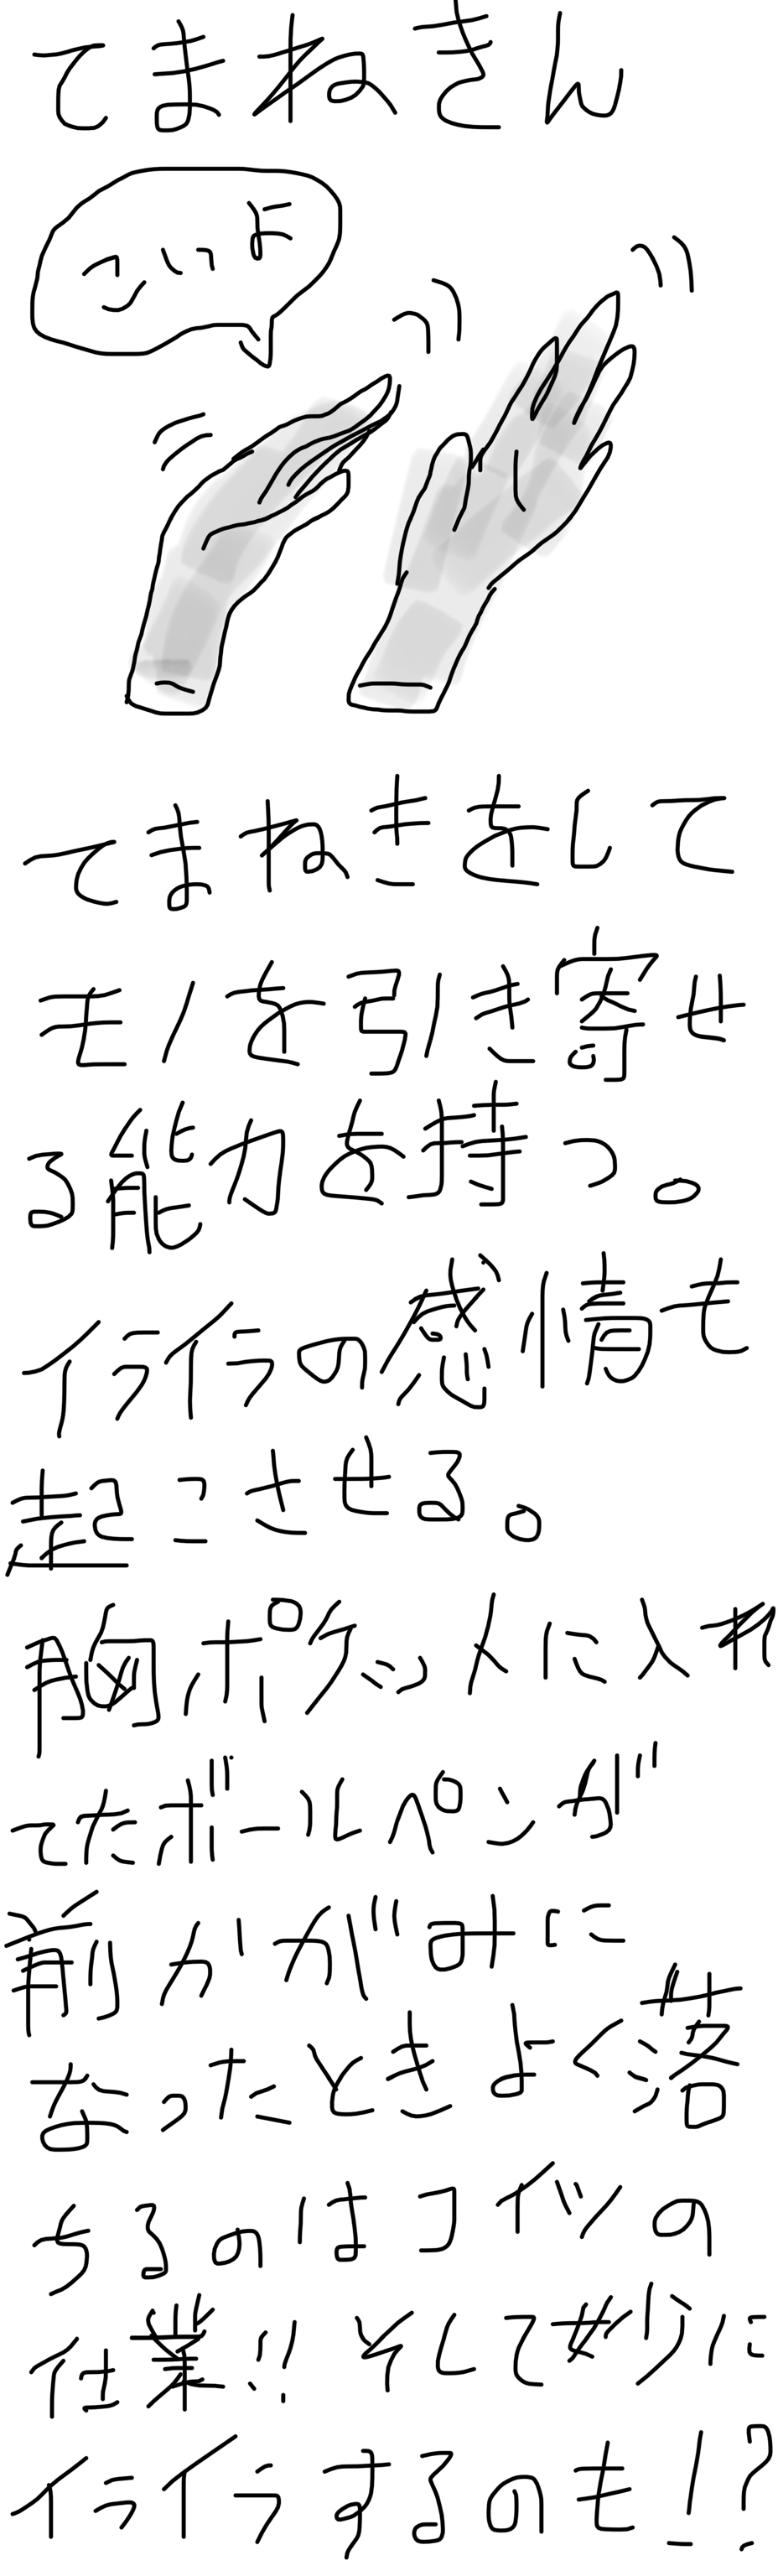 てまねきん
こいよ
てまねきをして
モノを引き寄せ
る能力を持つ。
イライラの感情も
起こさせる。
胸ポケットに入れ
てたボールペンが
前かがみに
なったときよく落
ちるのはコイツの
仕業!!そして妙に
イライラするのも!?